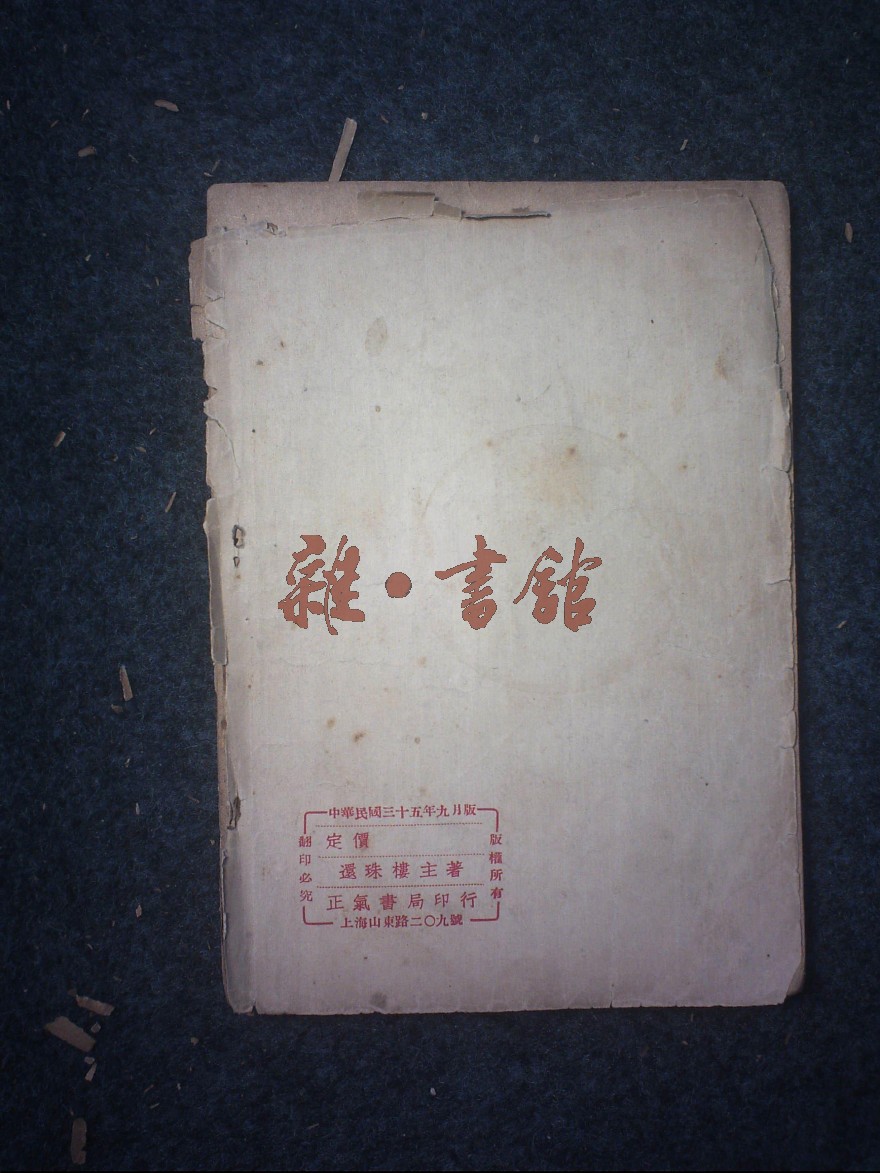 雜·書館
中華民國三十五年九月版
定價
還珠樓主著
正氣書局印行
上海山東路二〇九號
版權所有
翻印必究